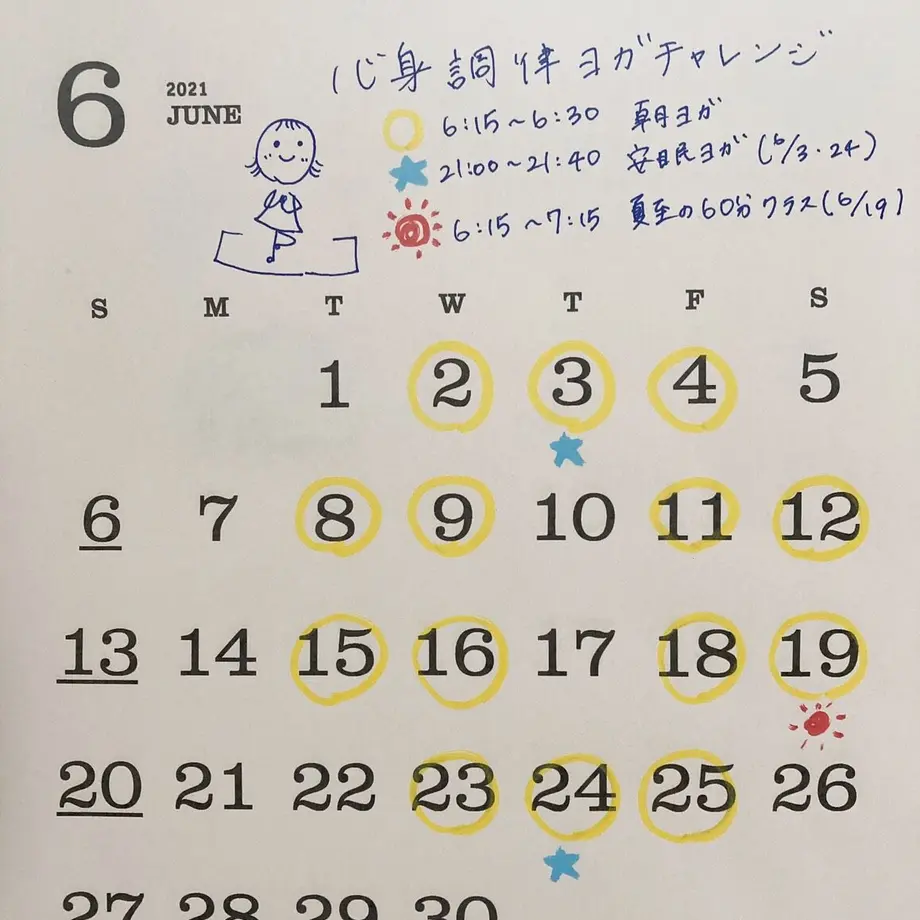 心身調律ヨガチャレンジ
6 2021 JUNE
6:15~6:30 朝ヨガ
21:00~21:40 安眠ヨガ(6/3・24)
6:15~7:15 夏至の60分クラス(6/19)
S M T W T F S
1 2 3 4 5
6 7 8 9 10 11 12
13 14 15 16 17 18 19
20 21 22 23 24 25 26
27 28 29 30